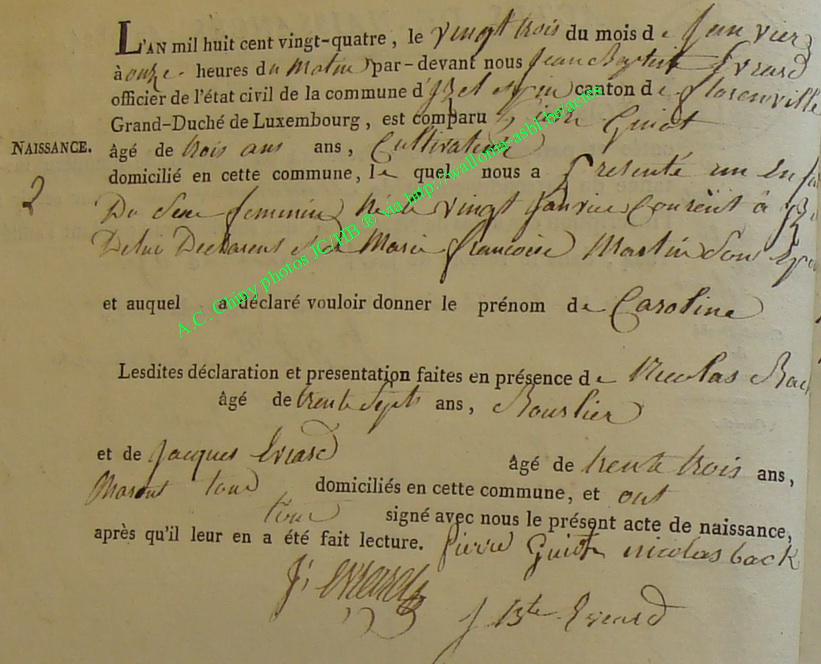 L'AN mil huit cent vingt-quatre, le vingt trois du mois de Janvier
à onze heures du Matin par-devant nous Jean Baptiste Evrard
officier de l'état civil de la commune d'Izel canton de Florenville
Grand-Duché de Luxembourg, est comparu Guiot
NAISSANCE. âgé de trois ans ans, Cultivateur
domicilié en cette commune, le quel nous a presenté un Enfan
2
Du Sexe feminin Né le vingt Janvier Courent à Iz
De lui Declarent et de Marie francoise Martin Son
et auquel a déclaré vouloir donner le prénom de Caroline
Lesdites déclaration et presentation faites en présence de Nicolas Back
âgé de trente Septs ans, Bourlier
et de Jacques Evrard âgé de trente trois ans,
domiciliés en cette commune, et ont
tous signé avec nous le présent acte de naissance,
après qu'il leur en a été fait lecture. Pierre Guiot nicolas back
J. Evrard
J Bte Evrard
A.C. Chiny photos JC/HB ® via http://wallonia-asbl-be/acms